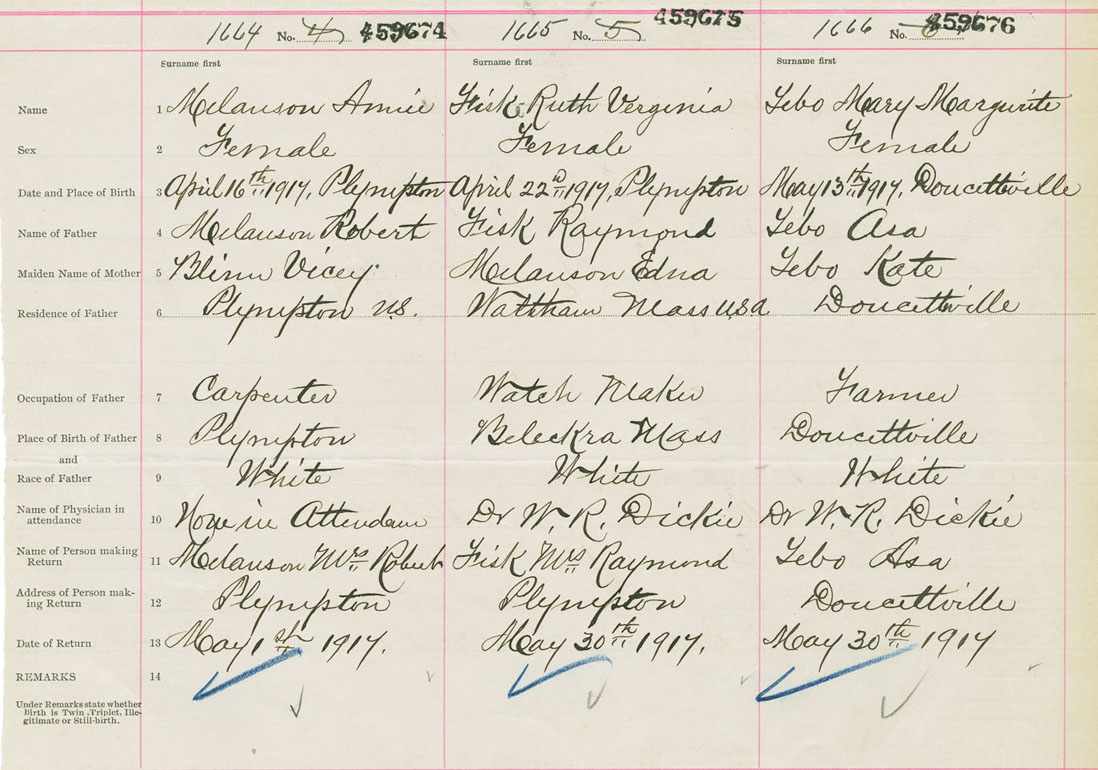 1664 No. 4 459674 1665 No. 5 459675 1666 No. 6 459676
Surname first Surname first Surname first
Name 1 Melanson Annie Fisk Ruth Verginia Lebo Mary Margurite
Sex 2 Female Female Female
Date and Place of Birth 3 April 16th 1917, Plympton April 22nd 1917, Plympton May 13th 1917, Doucettville
Name of Father 4 Melanson Robert Fisk Raymond Lebo Asa
Maiden Name of Mother 5 Blinn Vicey Melanson Edna Lebo Kate
Residence of Father 6 Plympton N.S. Waltham Mass U.S.a Doucettville
Occupation of Father 7 Carpenter Watch Maker Farmer
Place of Birth of Father 8 Plympton Beleckra Mass Doucettville
and
Race of Father 9 White White White
Name of Physician in
attendance 10 None in Attendance Dr W. R. Dickie Dr W. R. Dickie
Name of Person making
Return 11 Melanson Mrs Robert Fisk Mrs Raymond Lebo Asa
Address of Person mak-
ing Return 12 Plympton Plympton Doucettville
Date of Return 13 May 1st 1917. May 30th 1917. May 30th 1917
REMARKS 14
Under Remarks state whether
Birth is Twin, Triplet, Ille-
gitimate or Still-birth.